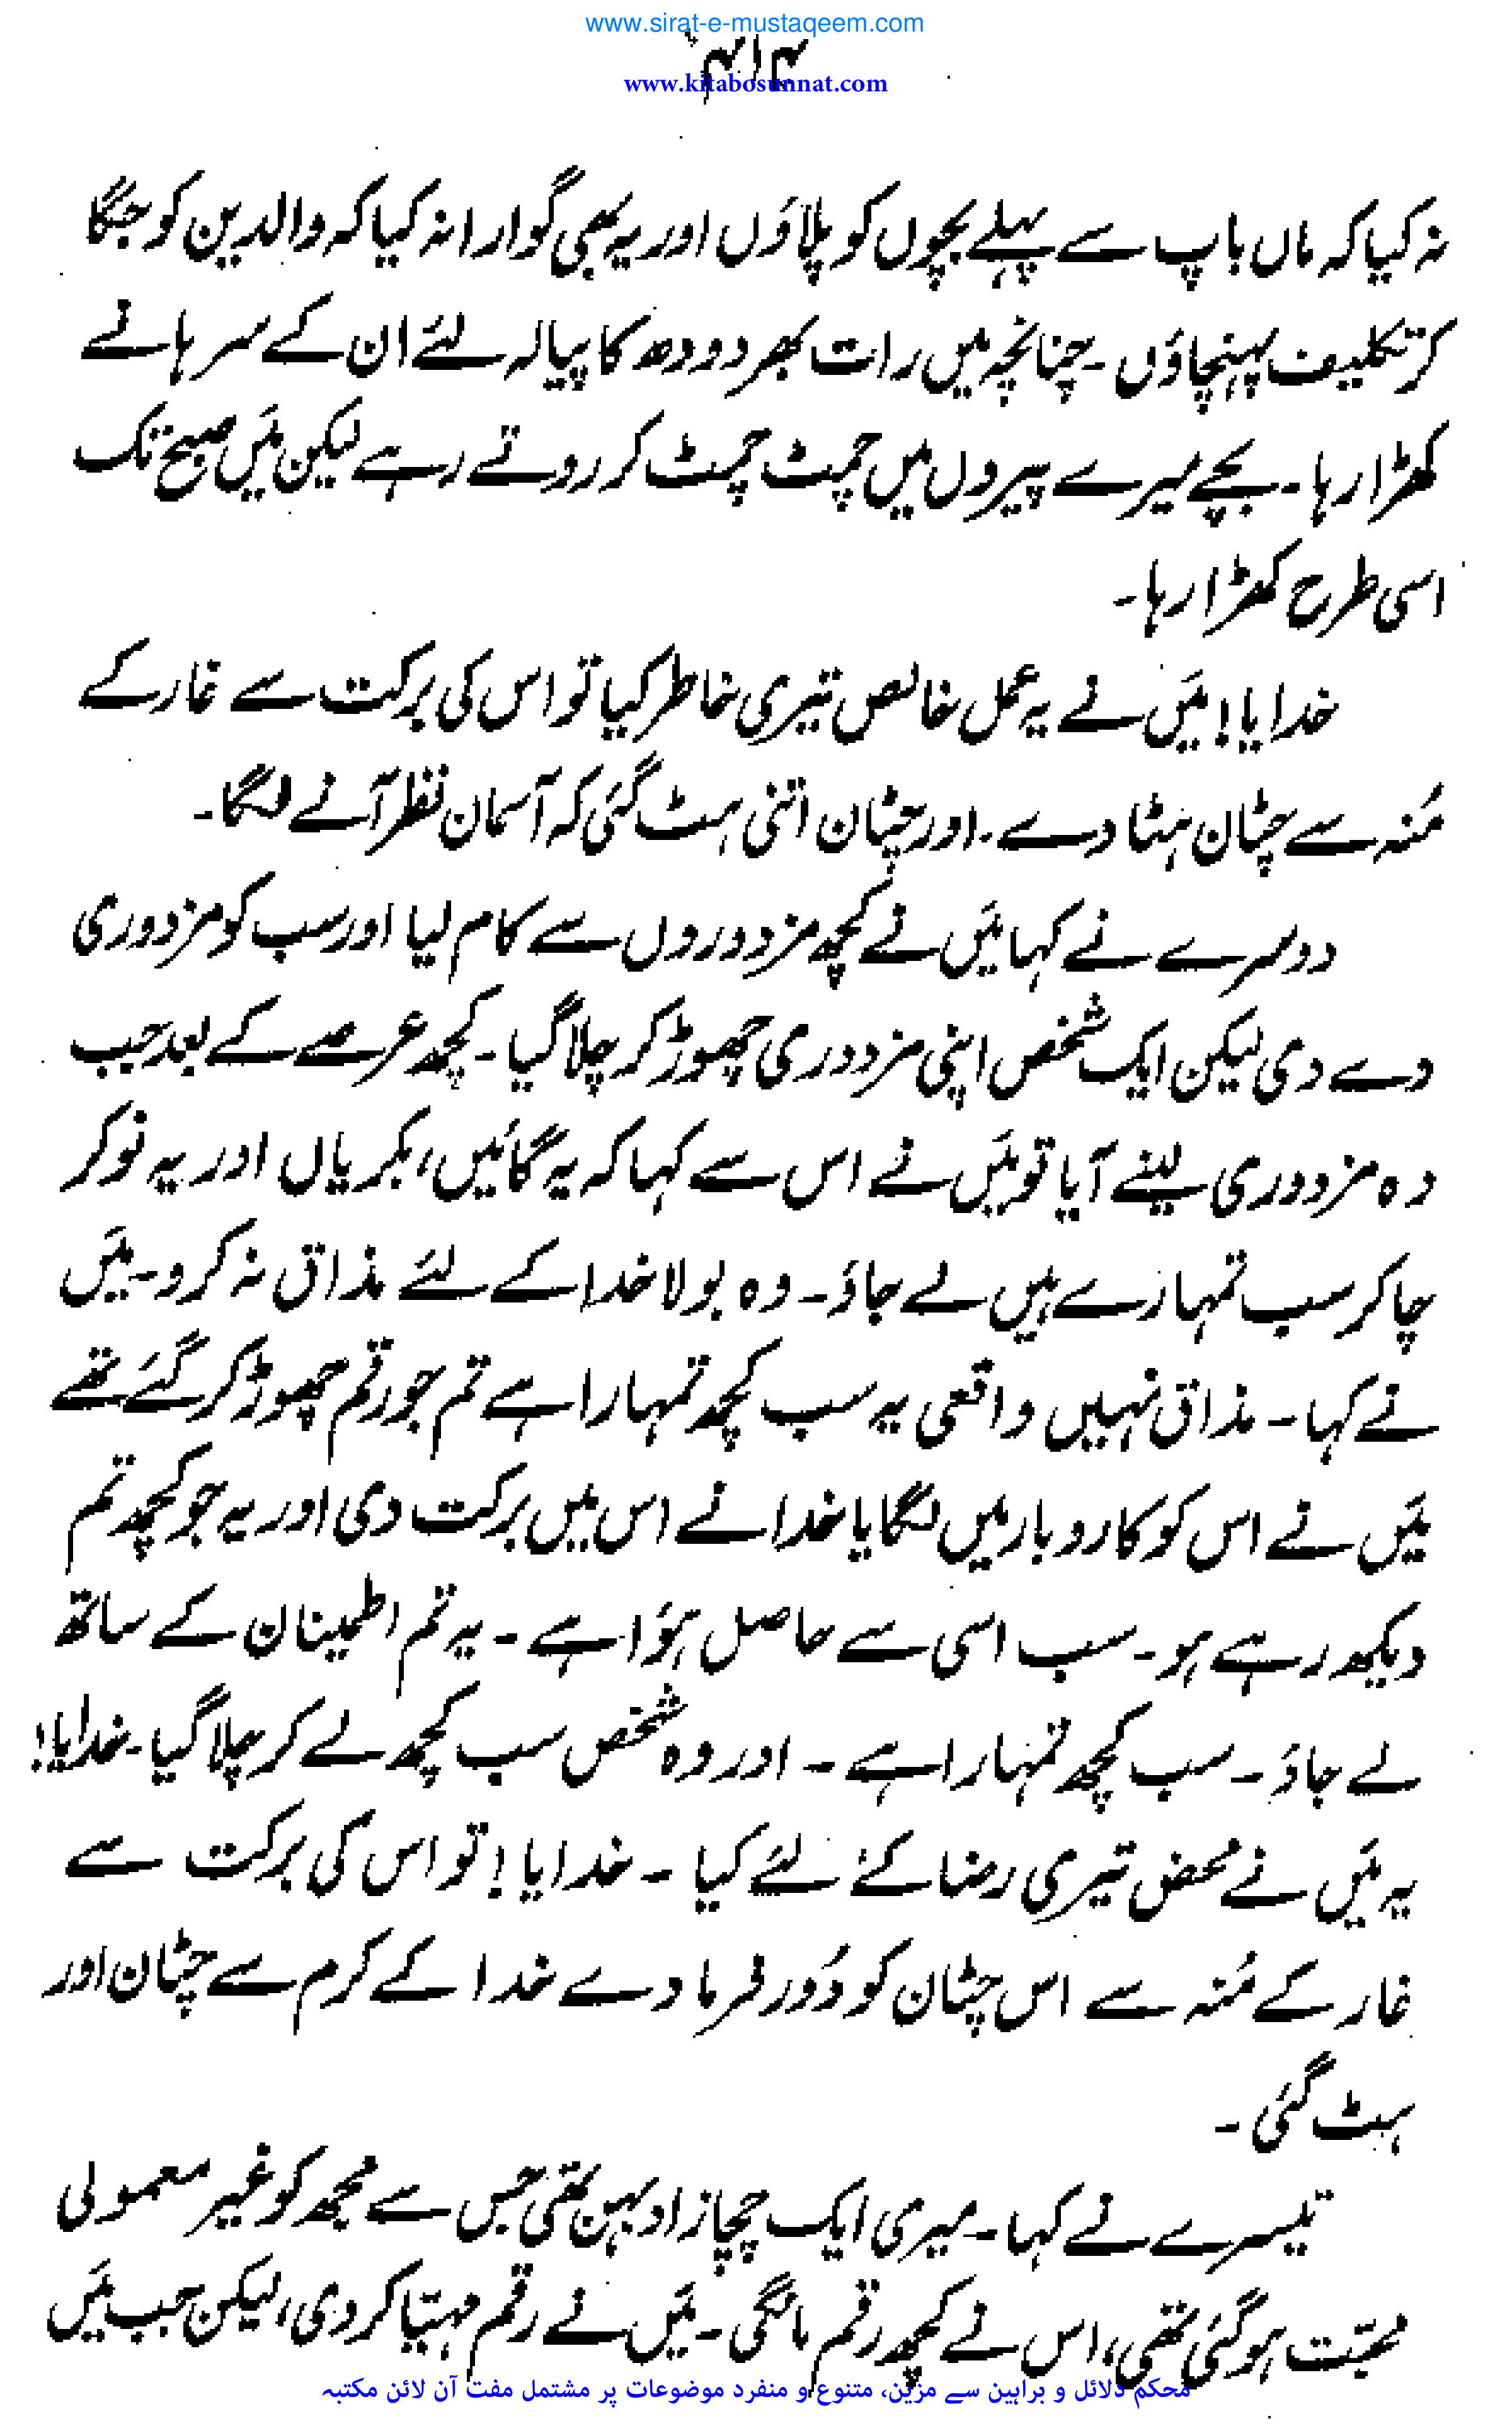 www.sirat-e-mustaqeem.com
۴۱۴
www.kitabosunnat.com
نہ کیا کہ ماں باپ سے پہلے بچوں کو پلاؤں اور یہ بھی گوارا نہ کیا کہ والدین کو جگا
کر تکلیف پہنچاؤں ۔ چنانچہ میں رات بھر دودھ کا پیالہ لئے ان کے سرہانے
کھڑا رہا ۔ بچے میرے پیروں میں چمٹ چمٹ کر روتے رہے لیکن مَیں صبح تک
اسی طرح کھڑا رہا ۔
خدایا! مَیں نے یہ عمل خالص تیری خاطر کیا تو اس کی برکت سے غار کے
مُنہ سے چٹان ہٹا دے ۔ اور چٹان اتنی ہٹ گئی کہ آسمان نظر آنے لگا ۔
دوسرے نے کہا مَیں نے کچھ مزدوروں سے کام لیا اور سب کو مزدوری
دے دی لیکن ایک شخص اپنی مزدوری چھوڑ کر چلا گیا ۔ کچھ عرصے کے بعد جب
وہ مزدوری لینے آیا تو مَیں نے اس سے کہا کہ یہ گائیں، بکریاں اور یہ نوکر
چاکر سب تمہارے ہیں لے جاؤ ۔ وہ بولا خدا کے لئے مذاق نہ کرو ۔ مَیں
نے کہا ۔ مذاق نہیں واقعی یہ سب کچھ تمہارا ہے تم جو رقم چھوڑ کر گئے تھے
مَیں نے اس کو کاروبار میں لگایا خدا نے اس میں برکت دی اور یہ جو کچھ تم
دیکھ رہے ہو ۔ سب اسی سے حاصل ہؤا ہے ۔ یہ تم اطمینان کے ساتھ
لے جاؤ ۔ سب کچھ تمہارا ہے ۔ اور وہ شخص سب کچھ لے کر چلا گیا ۔ خدایا!
یہ مَیں نے محض تیری رضا کے لئے کیا ۔ خدایا! تو اس کی برکت سے
غار کے مُنہ سے اس چٹان کو دُور فرما دے خدا کے کرم سے چٹان اور
ہٹ گئی ۔
تیسرے نے کہا ۔ میری ایک چچازاد بہن تھی جس سے مجھ کو غیر معمولی
محبّت ہوگئی تھی، اس نے کچھ رقم مانگی ۔ مَیں نے رقم مہیّا کر دی، لیکن جب مَیں
محکم دلائل و براہین سے مزین، متنوع و منفرد موضوعات پر مشتمل مفت آن لائن مکتبہ